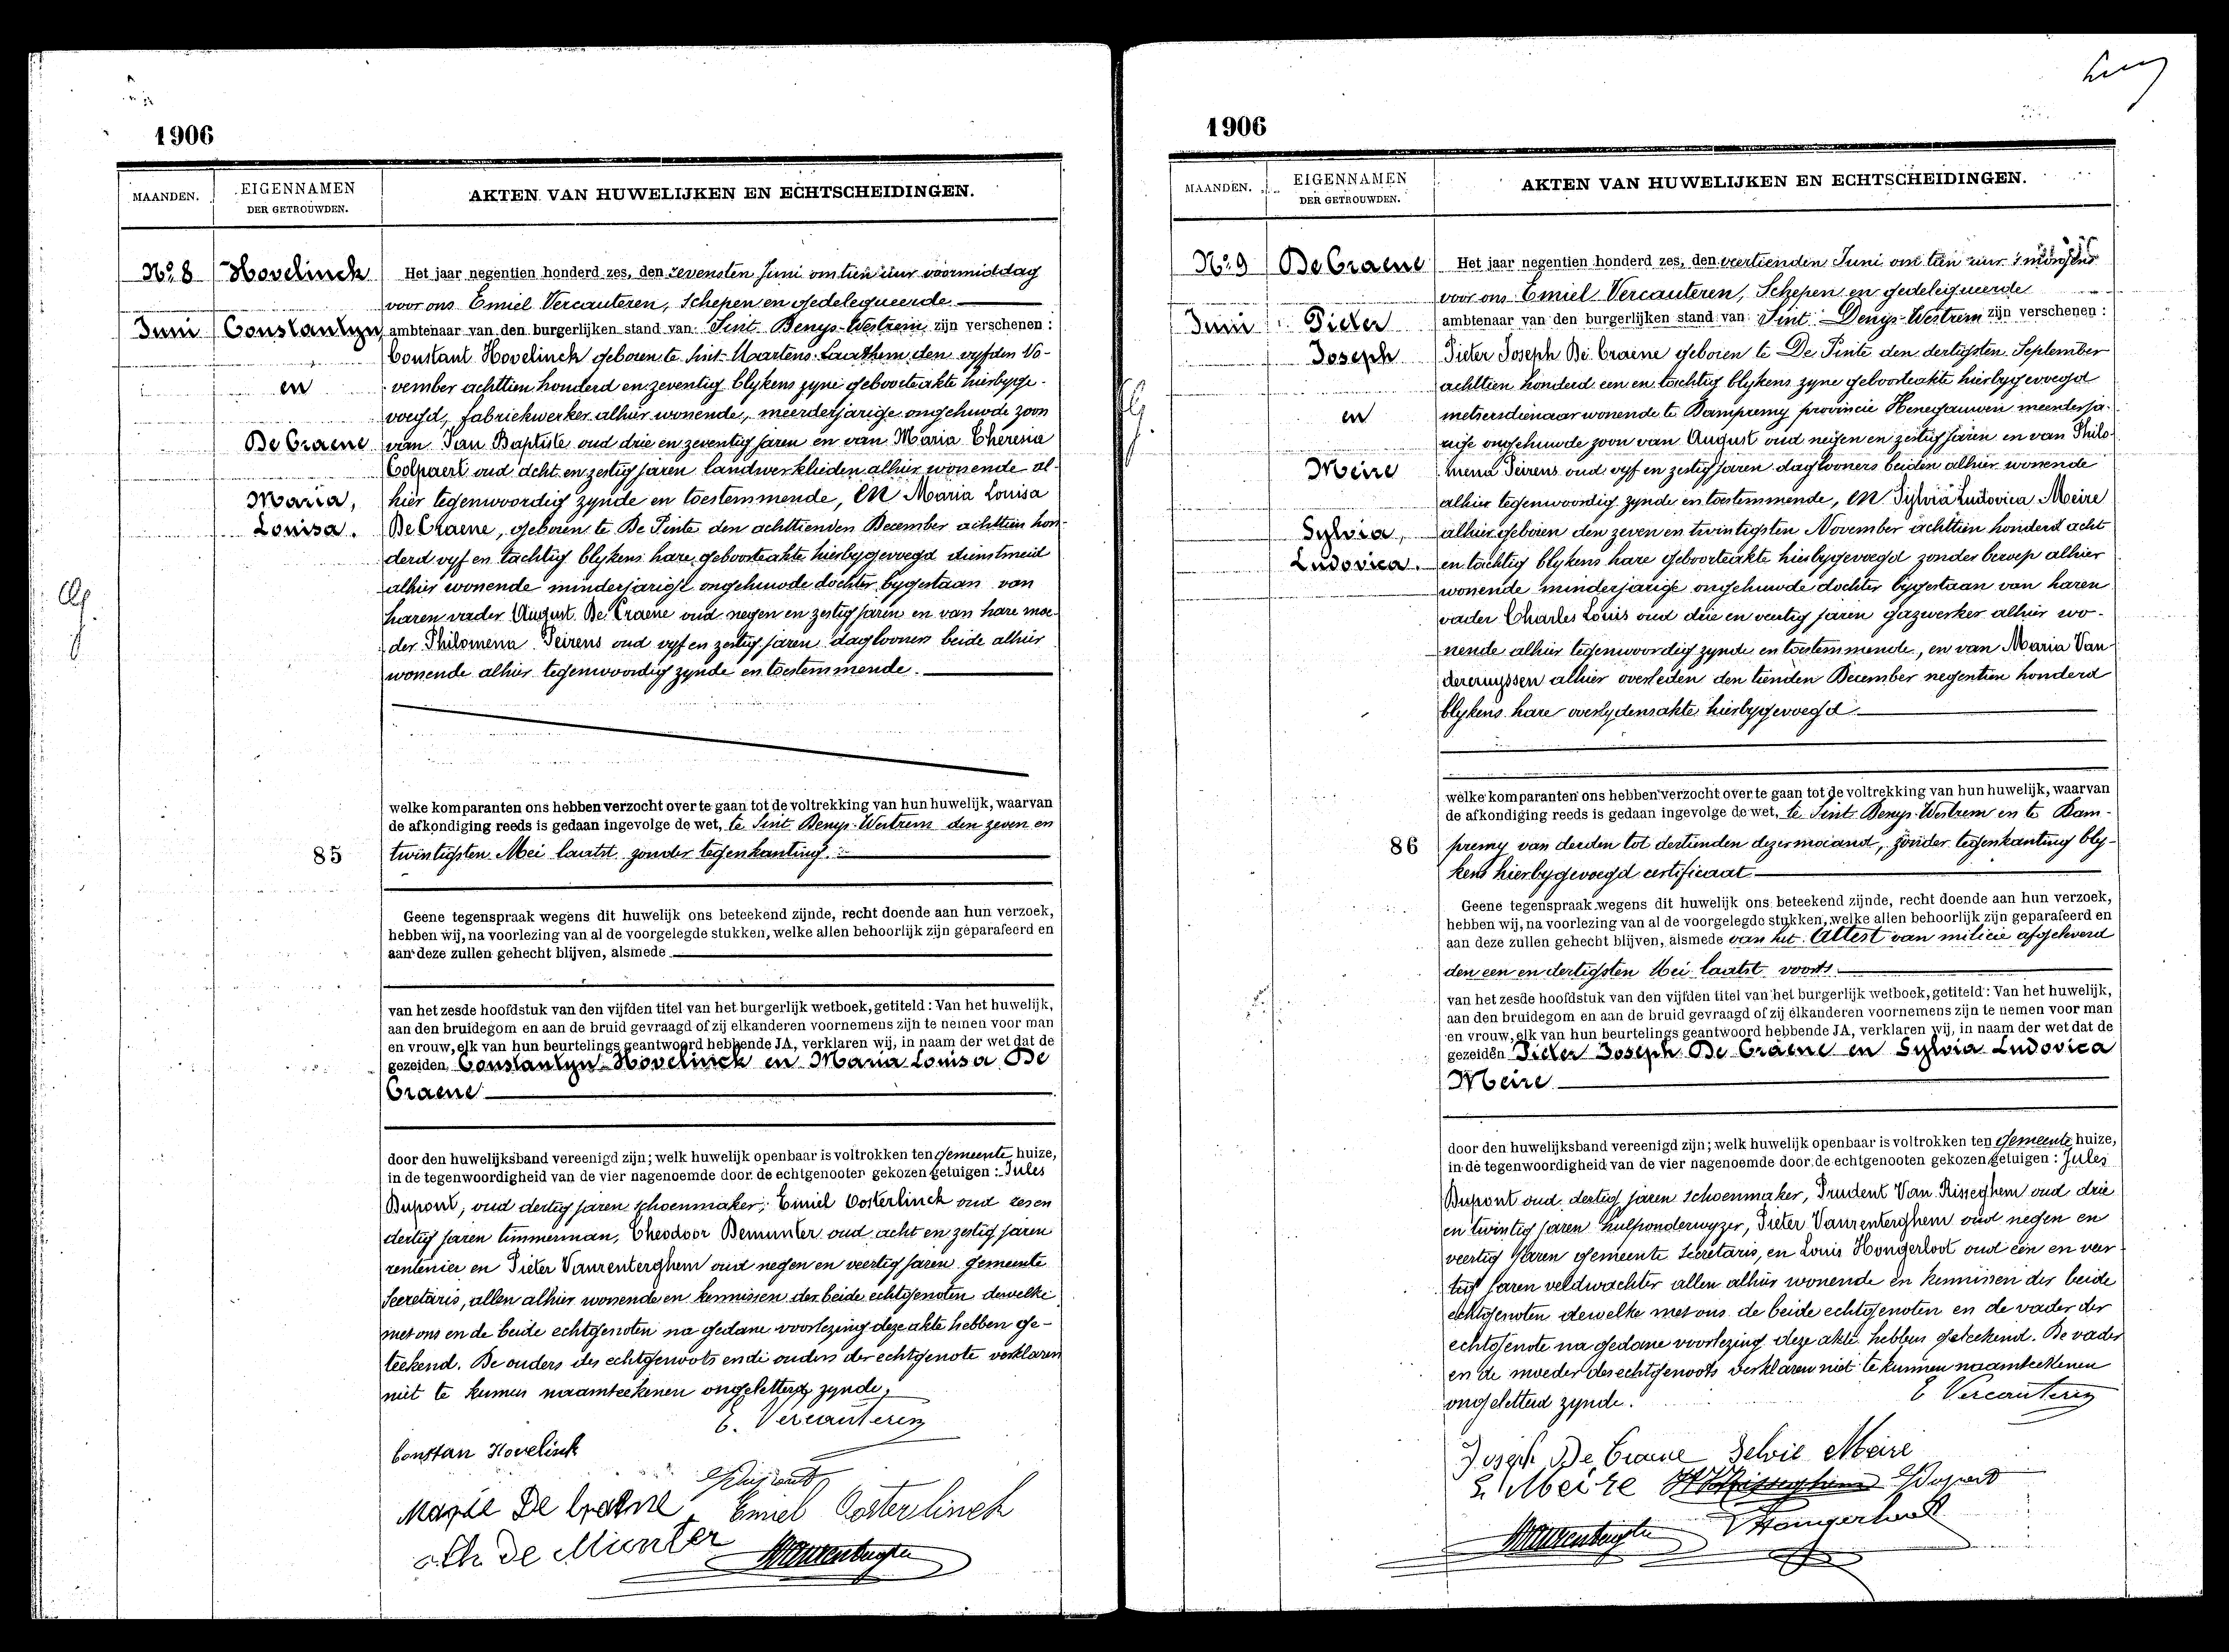 1906
MAANDEN.
EIGENNAMEN
DER GETROUWDEN.
AKTEN VAN HUWELIJKEN EN ECHTSCHEIDINGEN.
No. 8
Juni
Hovelinck
Constantyn,
en
De Craene
Maria,
Louisa.
Het jaar negentien honderd zes, den zevensten Juni om tien uur voormiddag
voor ons Emiel Vercauteren, Schepen en gedelegueerde
ambtenaar van den burgerlijken stand van Sint Denys-Westrem zijn verschenen :
Constant Hovelinck geboren te Sint-Maartens-Laathem den vyfden No-
vember achttien honderd en zeventig blykens zyne geboorteakte hierbyge-
voegd, fabriekwerker alhier wonende, meerderjarige ongehuwde zoon
van Jan Baptiste oud drie en zeventig jaren en van Maria Theresia
Colpaert oud acht en zestig jaren landwerklieden alhier wonende al-
hier tegenwoordig zynde en toestemmende, en Maria Louisa
De Craene, geboren te De Pinte den achttienden December achttien hon-
derd vyf en tachtig blykens hare geboorteakte hierbygevoegd dienstmeid
alhier wonende minderjarige ongehuwde dochter bygestaan van
haren vader August De Craene oud negen en zestig jaren en van hare moe-
der Philomena Peirens oud vyf en zestig jaren dagloonen beide alhier
wonende alhier tegenwoordig zynde en toestemmende.
welke komparanten ons hebben verzocht over te gaan tot de voltrekking van hun huwelijk, waarvan
de afkondiging reeds is gedaan ingevolge de wet, te Sint Denys-Westrem den zeven en
85
twintigsten Mei laatst zonder tegenkanting.
Geene tegenspraak wegens dit huwelijk ons beteekend zijnde, recht doende aan hun verzoek,
hebben wij, na voorlezing van al de voorgelegde stukken, welke allen behoorlijk zijn geparafeerd en
aan deze zullen gehecht blijven, alsmede
van het zesde hoofdstuk van den vijfden titel van het burgerlijk wetboek, getiteld : Van het huwelijk,
aan den bruidegom en aan de bruid gevraagd of zij elkanderen voornemens zijn te nemen voor man
en vrouw, elk van hun beurtelings geantwoord hebbende JA, verklaren wij, in naam der wet dat de
gezeiden, Constantyn Hovelinck en Maria Louisa De
Craene
door den huwelijksband vereenigd zijn ; welk huwelijk openbaar is voltrokken ten gemeente huize,
in de tegenwoordigheid van de vier nagenoemde door de echtgenooten gekozen getuigen : Jules
Dupont, oud dertig jaren schoenmaker, Emiel Oosterlinck oud zes en
dertig jaren timmerman, Theodoor Demunter oud acht en zestig jaren
rentenier en Pieter Vanrenterghem oud negen en veertig jaren gemeente
Secretaris, allen alhier wonende en kennissen der beide echtgenoten dewelke
met ons en de beide echtgenoten na gedane voorlezing deze akte hebben ge-
teekend. De ouders des echtgenoots en de ouders der echtgenote verklaren
niet te kunnen naamteekenen ongeletterd zynde,
E. Vercauteren
Constan Hovelinck
Dupont
Marie De Craene Emiel Oosterlinck
Th De Munter
1906
MAANDEN.
EIGENNAMEN
DER GETROUWDEN.
AKTEN VAN HUWELIJKEN EN ECHTSCHEIDINGEN.
No. 9
Juni
De Craene
Pieter
Joseph
en
Meire
Sylvia,
Ludovica.
Het jaar negentien honderd zes, den veertienden Juni om tien uur 's morgens
voor ons Emiel Vercauteren, Schepen en gedelegueerde
ambtenaar van den burgerlijken stand van Sint Denys-Westrem zijn verschenen :
Pieter Joseph De Craene geboren te De Pinte den dertigsten September
achttien honderd een en tachtig blykens zyne geboorteakte hierbygevoegd
metsersdienaar wonende te Dampremy provincie Henegauwen meerderja-
rige ongehuwde zoon van August oud negen en zestig jaren en van Philo-
mena Peirens oud vyf en zestig jaren daglooners beiden alhier wonende
alhier tegenwoordig zynde en toestemmende, en Sylvia Ludovica Meire
alhier geboren den zeven en twintigsten November achttien honderd acht
en tachtig blykens hare geboorteakte hierbygevoegd zonder beroep alhier
wonende minderjarige ongehuwde dochter bijgestaan van haren
vader Charles Louis oud drie en veertig jaren gazwerker alhier wo-
nende alhier tegenwoordig zynde en toestemmende, en van Maria Van-
dercruyssen alhier overleden den tienden December negentien honderd
blykens hare overlydensakte hierbygevoegd
welke komparanten ons hebben verzocht over te gaan tot de voltrekking van hun huwelijk, waarvan
de afkondiging reeds is gedaan ingevolge de wet, te Sint Denys-Westrem en te Dam-
86
premy van derden tot dertienden dezer maand, zonder tegenkanting bly-
kens hierbygevoegd certificaat
Geene tegenspraak wegens dit huwelijk ons beteekend zijnde, recht doende aan hun verzoek,
hebben wij, na voorlezing van al de voorgelegde stukken, welke allen behoorlijk zijn geparafeerd en
aan deze zullen gehecht blijven, alsmede van het Attest van milicie afgeleverd
den een en dertigsten Mei laatst voorts
van het zesde hoofdstuk van den vijfden titel van het burgerlijk wetboek, getiteld : Van het huwelijk,
aan den bruidegom en aan de bruid gevraagd of zij elkanderen voornemens zijn te nemen voor man
en vrouw, elk van hun beurtelings geantwoord hebbende JA, verklaren wij, in naam der wet dat de
gezeiden Pieter Joseph De Craene en Sylvia Ludovica
Meire
door den huwelijksband vereenigd zijn ; welk huwelijk openbaar is voltrokken ten gemeente huize,
in de tegenwoordigheid van de vier nagenoemde door de echtgenooten gekozen getuigen : Jules
Dupont oud dertig jaren schoenmaker, Prudent Van Risseghem oud drie
en twintig jaren hulponderwyzer, Pieter Vanrenterghem oud negen en
veertig jaren gemeente Secretaris, en Louis Hongerloot oud een en veer
tig jaren veldwachter allen alhier wonende en kennissen der beide
echtgenoten dewelke met ons de beide echtgenoten en de vader der
echtgenote na gedane voorlezing deze akte hebben geteekend. De vader
en de moeder des echtgenoots verklaren niet te kunnen naamteekenen
ongeletterd zynde.
E Vercauteren
Joseph De Craene Selvie Meire
Meire Dupont
Hongerloot